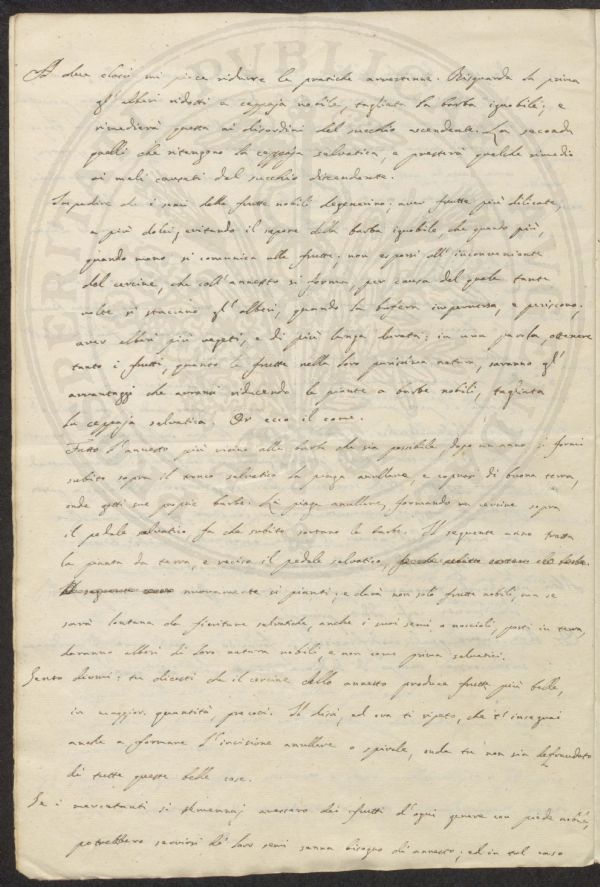 A due classi mi piace ridurre le pratiche avvertenze. Risguarda la prima
gl' alberi ridotti a ceppaja nobile, tagliata la barba ignobile; e
rimedierà questa ai disordini del succhio ascendente. La seconda
quelli che ritengono la ceppaja salvatica, e presterà qualche rimedio
ai mali causati dal succhio discendente.
Impedire che i semi delle frutte nobili degenerino; aver frutte più dilicate,
e più dolci, evitando il sapore della barba ignobile che quando più,
quando meno, si comunica alle frutte; non esporsi all' inconveniente
del cercine, che coll' annesto si forma, per causa del quale tante
volte si staccano gl' alberi, quando la bufera imperversa, e periscono;
aver alberi più vegeti, e di più lunga durata; in una parola, ottenere
tanto i frutti, quanto le frutte nella loro purissima natura, saranno gl'
avvantaggi che avransi riducendo le piante a barbe nobili, tagliata
la ceppaja salvatica. Or ecco il come.
Fatto l' annesto più vicino alla barba che sia possibile, dopo un anno si formi
subito sopra il tronco salvatico la piaga anullare, e coprasi di buona terra,
onde getti sue proprie barbe. La piaga anullare, formando un cercine sopra
il pedale salvatico fa che subito sortano le barbe. Il seguente anno tratta
la pianta da terra, e reciso il pedale salvatico, fa che subito sortano le barbe.
Il seguente anno nuovamente si pianti; e darà non solo frutte nobili, ma se
sarà lontana da fioriture salvatiche, anche i suoi semi o noccioli, posti in terra,
daranno alberi di loro natura nobili, e non come prima salvatici.
Sento dirmi: tu dicesti che il cercine dello annesto produce frutte più belle,
in maggior quantità, precoci. Il dissi, ed ora ti ripeto, che t' insegnai
anche a formare l' incisione anullare o spirale, onde tu non sia defraudato
di tutte queste belle cose.
Se i mercatanti si avessero dei frutti d' ogni genere con piede nobile,
potrebbero servirsi de' loro semi senza bisogno di annesto; ed in tal caso